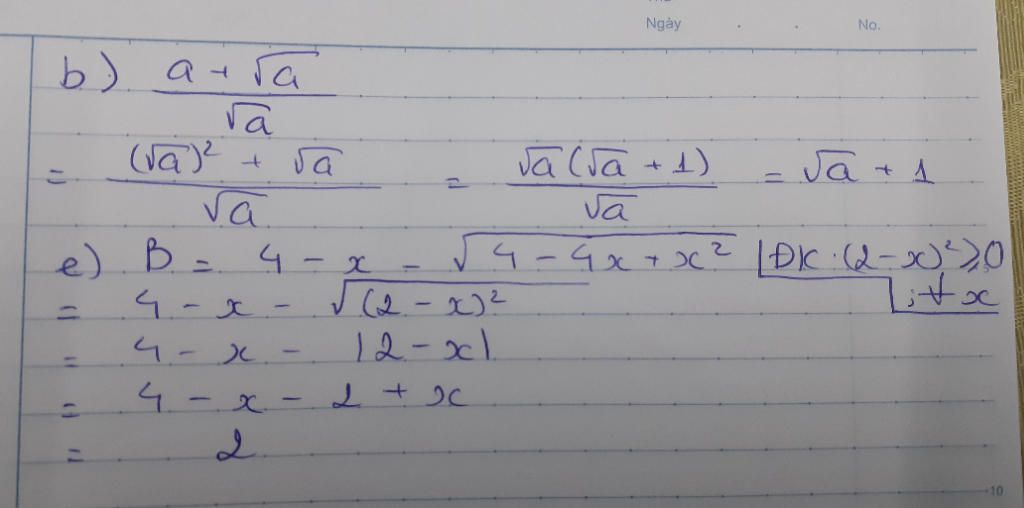 Ngày . . No.
b) a + √a / √a
= (√a)² + √a / √a = √a(√a + 1) / √a = √a + 1
e) B = 4 - x - √4 - 4x + x² |ĐK: (2-x)² ≥ 0
; ∀ x
= 4 - x - √(2 - x)²
= 4 - x - |2 - x|
= 4 - x - 2 + x
= 2
10